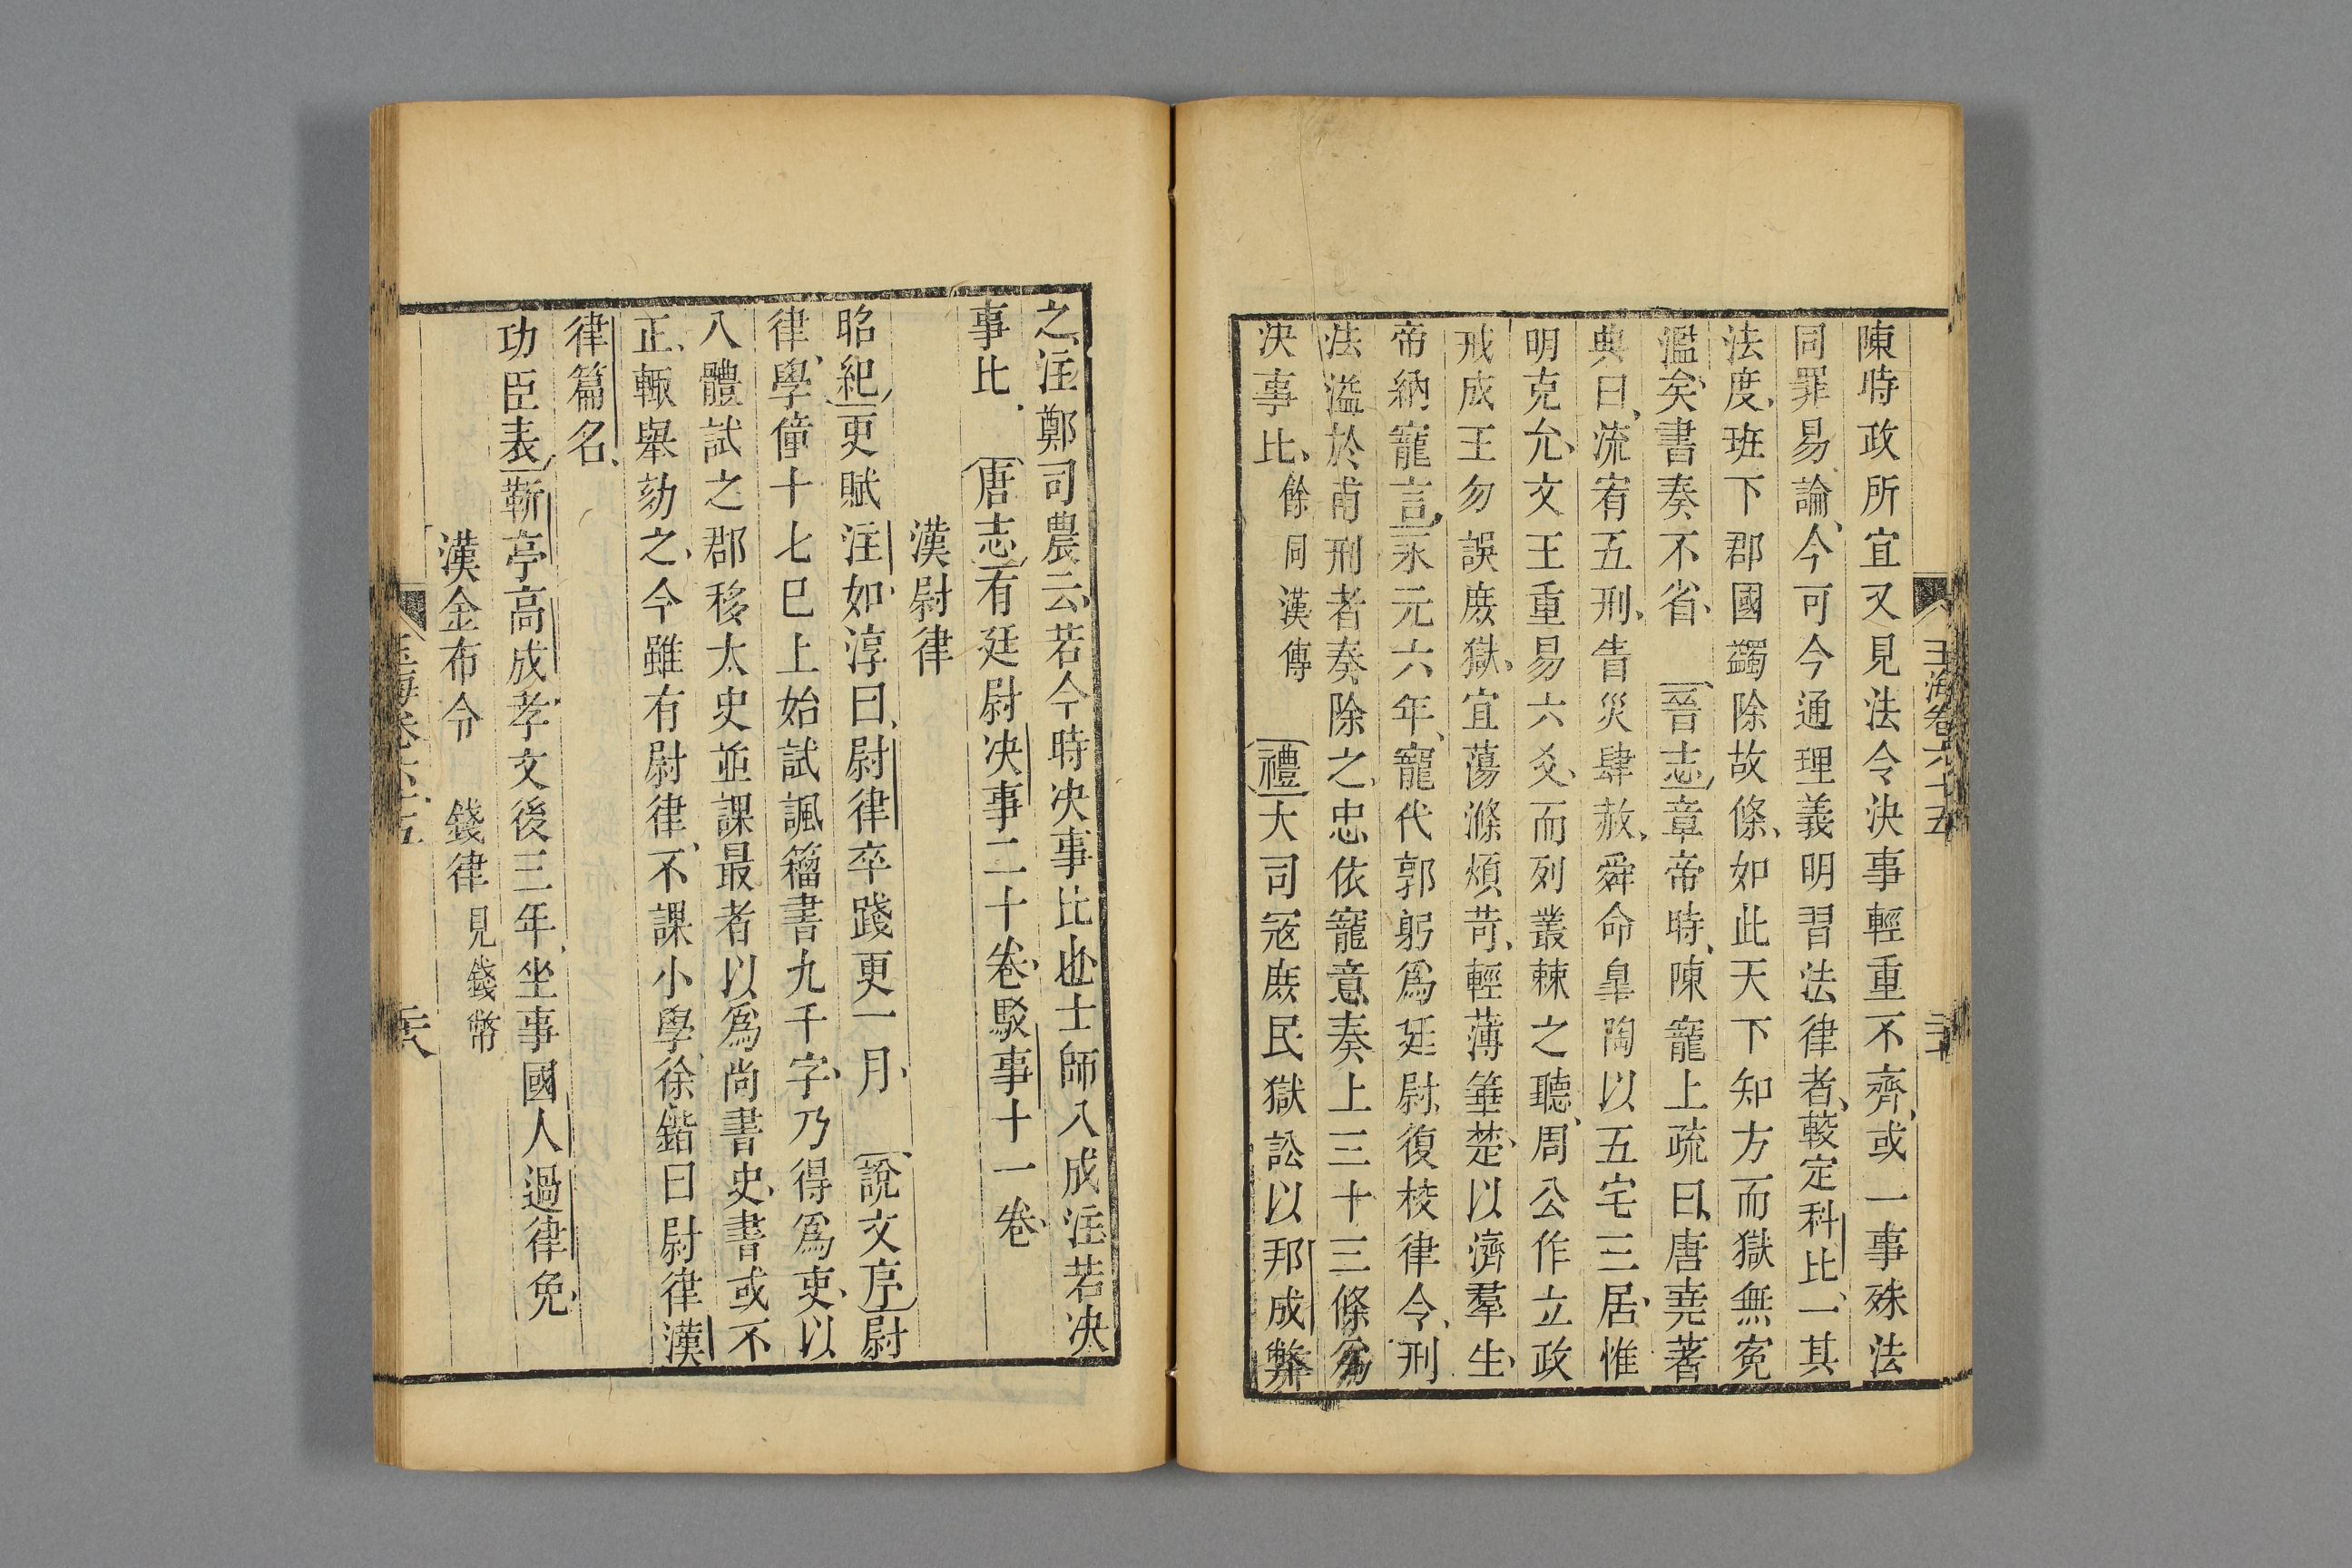 玉海卷六十五
陳時政所宜又見法令決事輕重不齊或一事殊法
同罪易論今可令通理義明習法律者較定科比一其
法度班下郡國蠲除故條如此天下知方而獄無寃
濫矣書奏不省 晉志章帝時陳寵上疏曰唐堯著
典曰流宥五刑眚災肆赦舜命臯陶以五宅三居惟
明克允文王重易六爻而列叢棘之聽周公作立政
戒成王勿誤庶獄宜蕩滌煩苛輕薄箠楚以濟羣生
帝納寵言永元六年寵代郭躬爲廷尉復校律令刑
法溢於甫刑者奏除之忠依寵意奏上三十三條爲
決事比餘同漢傳 禮大司寇庶民獄訟以邦成弊
之注鄭司農云若今時决事比也士師八成注若决
事比 唐志有廷尉决事二十卷駁事十一卷
漢尉律
昭紀更賦注如淳曰尉律卒踐更一月 說文序尉
律學僮十七巳上始試諷籀書九千字乃得爲吏以
八體試之郡移太史並課最者以爲尚書史書或不
正輒舉劾之今雖有尉律不課小學徐鍇曰尉律漢
律篇名
功臣表靳亭高成孝文後三年坐事國人過律免
漢金布令 錢律見錢幣
玉海卷六十五